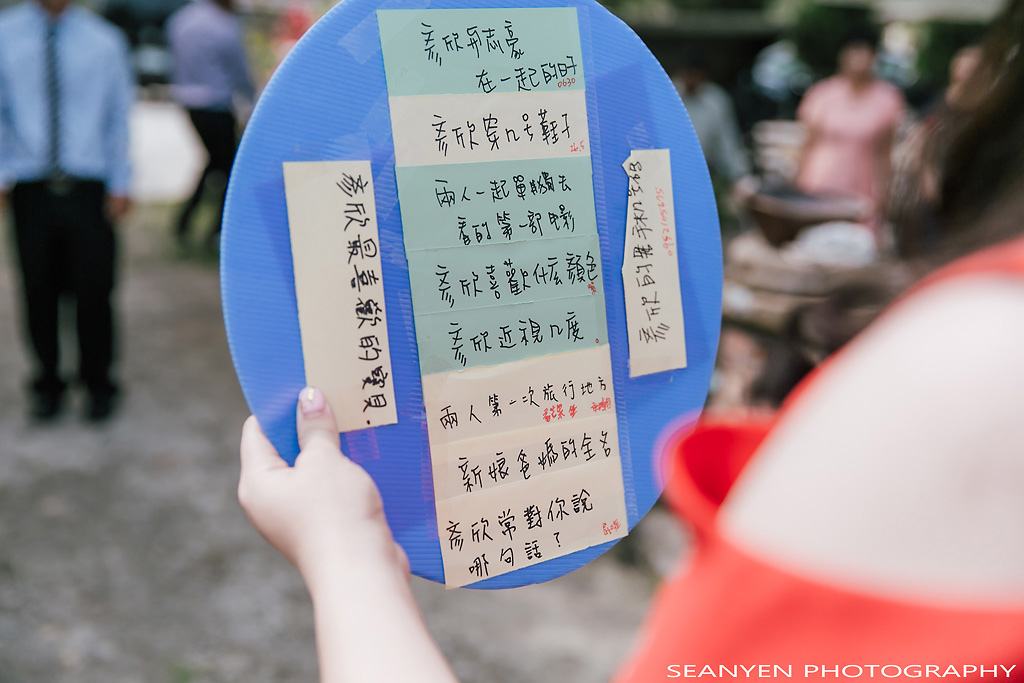 彥欣最喜歡的寶貝.
彥欣和志豪
在一起的日子
0630
彥欣穿几号鞋子
26.5
兩人一起單獨去
看的第一部電影
彥欣喜歡什么顏色
彥欣近視几度
兩人第一次旅行地方
新娘爸媽的全名
彥欣常對你說
哪句話？
彥欣的手机号码
SEANYEN PHOTOGRAPHY